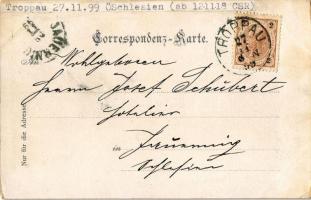 Troppau 27.11.99 ÖSchlesien (ab 121118 CSR)
Correspondenz-Karte.
TROPPAU
Wohlgeboren
Herrn Josef Schubert
Hotelier
in Jauernig
Schlesien
Nur für die Adresse